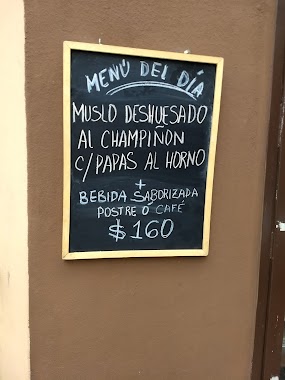 MENÚ DEL DÍA
MUSLO DESHUESADO
AL CHAMPIÑON
C/PAPAS AL HORNO
+
BEBIDA SABORIZADA
POSTRE Ó CAFÉ
$160